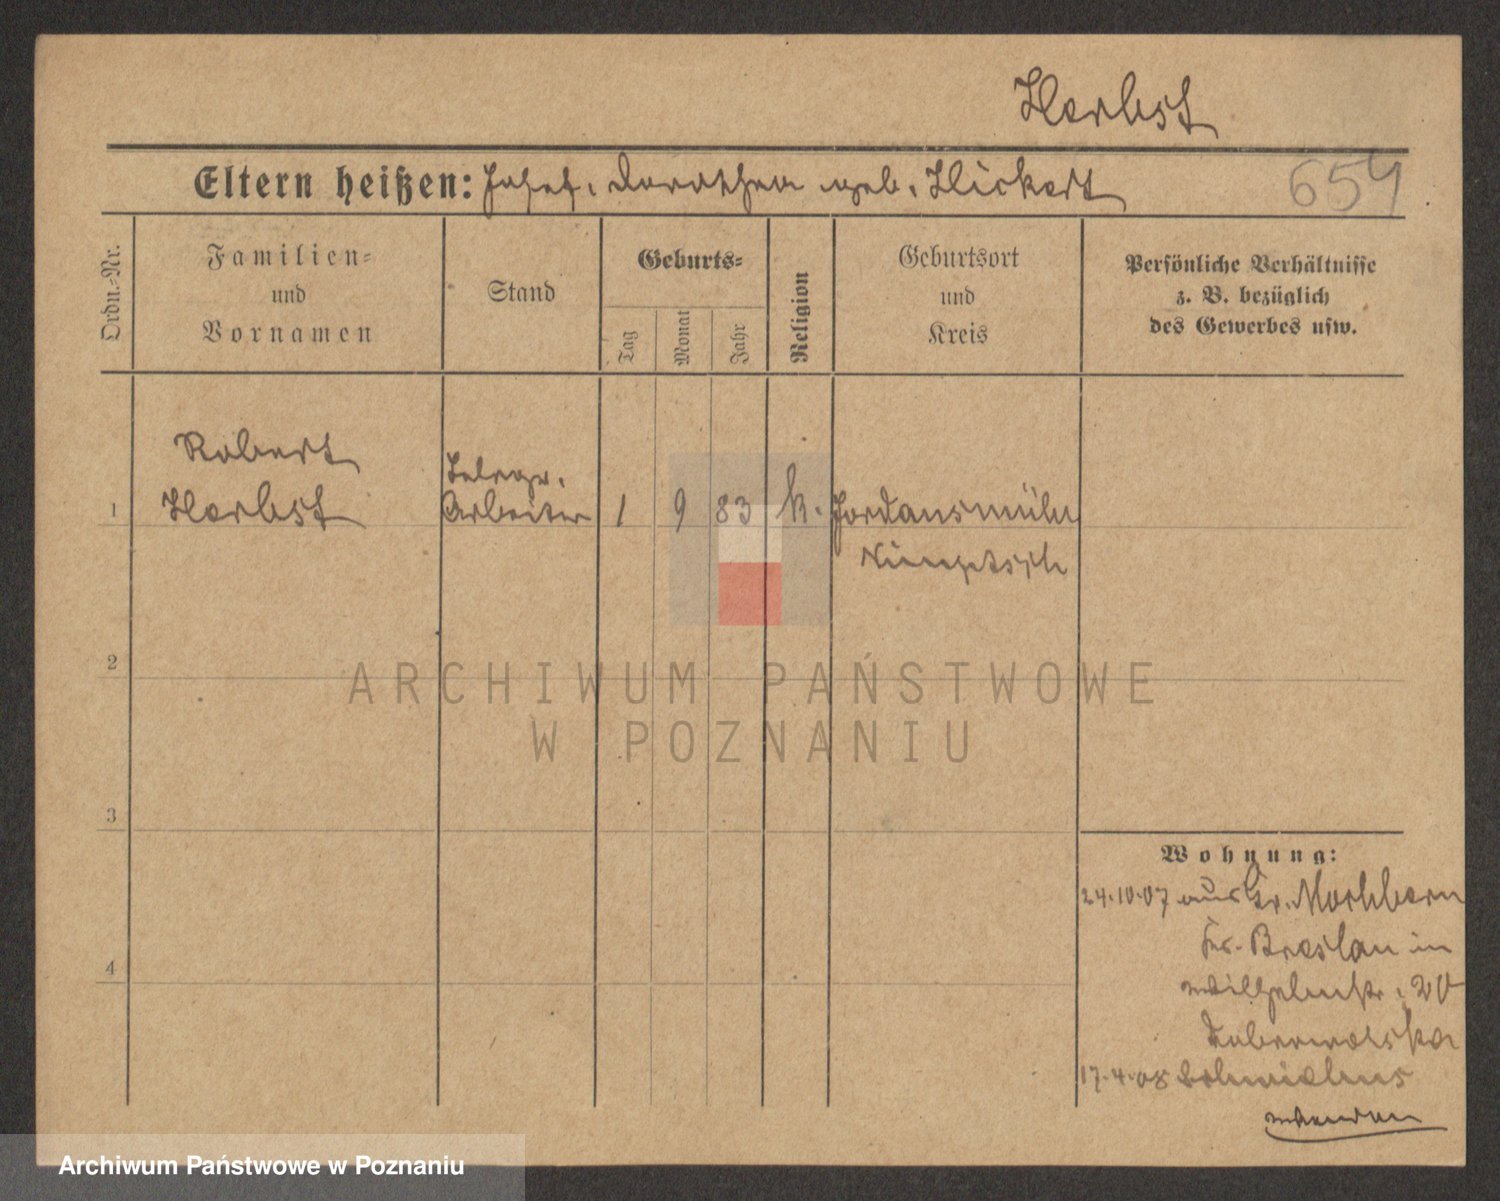 Herbst
Eltern heißen: Josef, Dorothea geb. Hickert
654
Ordn.-Nr.
Familien-
und
Vornamen
Stand
Geburts-
Tag
Monat
Jahr
Religion
Geburtsort
und
Kreis
Persönliche Verhältnisse
z. B. bezüglich
des Gewerbes usw.
Robert
Herbst
Telegr.
Arbeiter
1
1
9
83
k.
Jordansmühl
Nimptsch
2
3
4
ARCHIWUM PAŃSTWOWE
W POZNANIU
Wohnung:
24.10.07 aus Gr. Mochbern
Kr. Breslau in
Wilhelmstr. 20
17.4.08
Archiwum Państwowe w Poznaniu